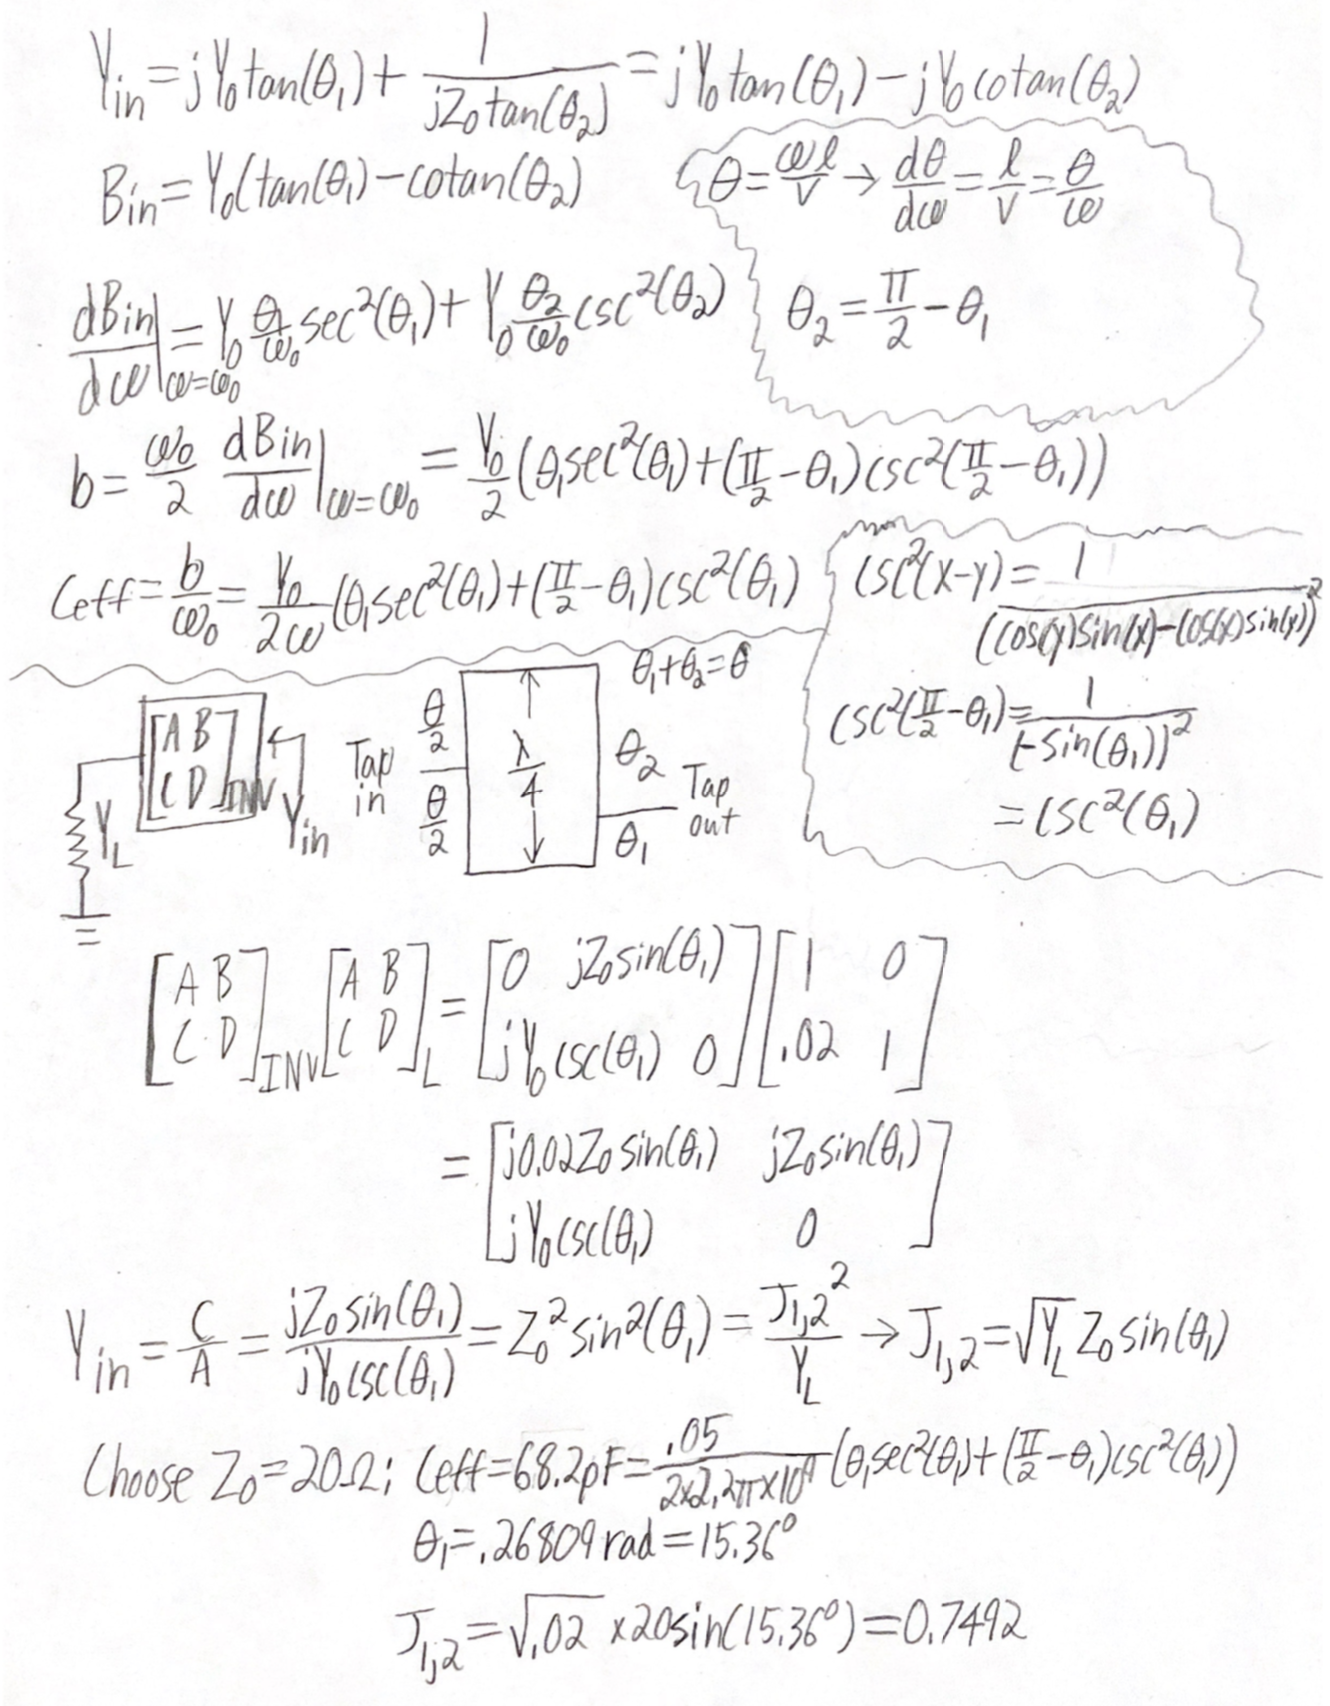 Yin = jY0tan(θ1) + 1/(jZ0tan(θ2)) = jY0tan(θ1) − jY0cotan(θ2)
Bin = Y0(tan(θ1) − cotan(θ2)
θ = ωl/v → dθ/dω = l/v = θ/ω
dBin/dω|ω=ω0 = Y0 θ1/ω0 sec²(θ1) + Y0 θ2/ω0 csc²(θ2)
θ2 = π/2 − θ1
b = ω0/2 dBin/dω|ω=ω0 = Y0/2 (θ1sec²(θ1) + (π/2 − θ1)csc²(π/2 − θ1))
Ceff = b/ω0 = Y0/2ω (θ1sec²(θ1) + (π/2 − θ1)csc²(θ1)
csc²(x−y) = 1/(cos(y)sin(x) − cos(x)sin(y))²
csc²(π/2 − θ1) = 1/(−sin(θ1))²
= csc²(θ1)
YL
[A B
C D]INV
Yin
Tap in
θ/2
θ/2
λ/4
θ1 + θ2 = θ
θ2
Tap out
θ1
[A B; C D]INV [A B; C D]L = [0 jZ0sin(θ1); jY0csc(θ1) 0] [1 0; .02 1]
= [j0.02Z0sin(θ1) jZ0sin(θ1); jY0csc(θ1) 0]
Yin = C/A = jZ0sin(θ1)/jY0csc(θ1) = Z0²sin²(θ1) = J1,2²/YL → J1,2 = √YL Z0sin(θ1)
Choose Z0 = 20Ω; Ceff = 68.2pF = .05/(2×2.2π×10⁹) (θ1sec²(θ1) + (π/2 − θ1)csc²(θ1))
θ1 = .26809 rad = 15.36°
J1,2 = √.02 × 20sin(15.36°) = 0.7492